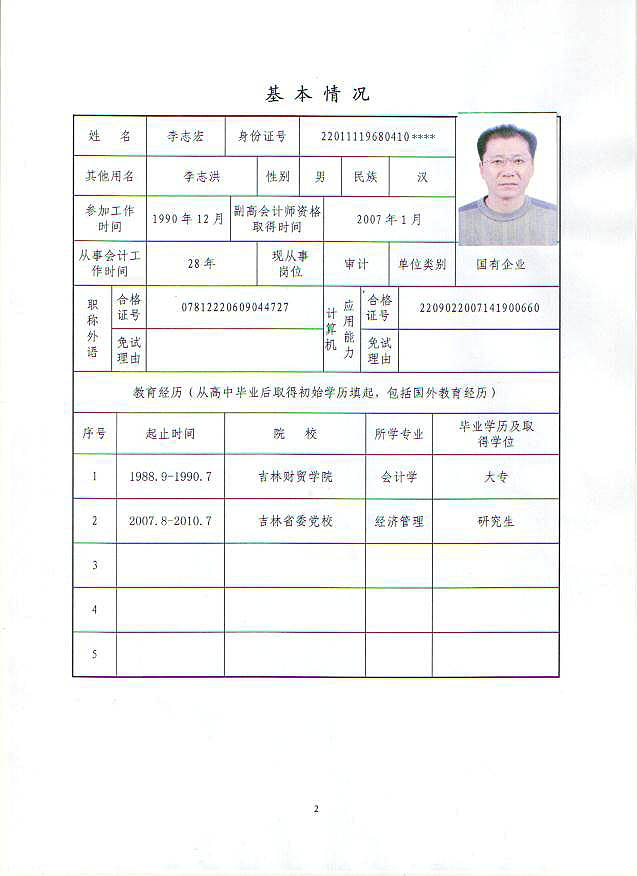 基本情况
姓名 李志宏 身份证号 22011119680410****
其他用名 李志洪 性别 男 民族 汉
参加工作时间 1990年12月 副高会计师资格取得时间 2007年1月
从事会计工作时间 28年 现从事岗位 审计 单位类别 国有企业
职称外语 合格证号 07812220609044727 计算机应用能力 合格证号 2209022007141900660
免试理由 免试理由
教育经历（从高中毕业后取得初始学历填起，包括国外教育经历）
序号 起止时间 院校 所学专业 毕业学历及取得学位
1 1988.9-1990.7 吉林财贸学院 会计学 大专
2 2007.8-2010.7 吉林省委党校 经济管理 研究生
3
4
5
2